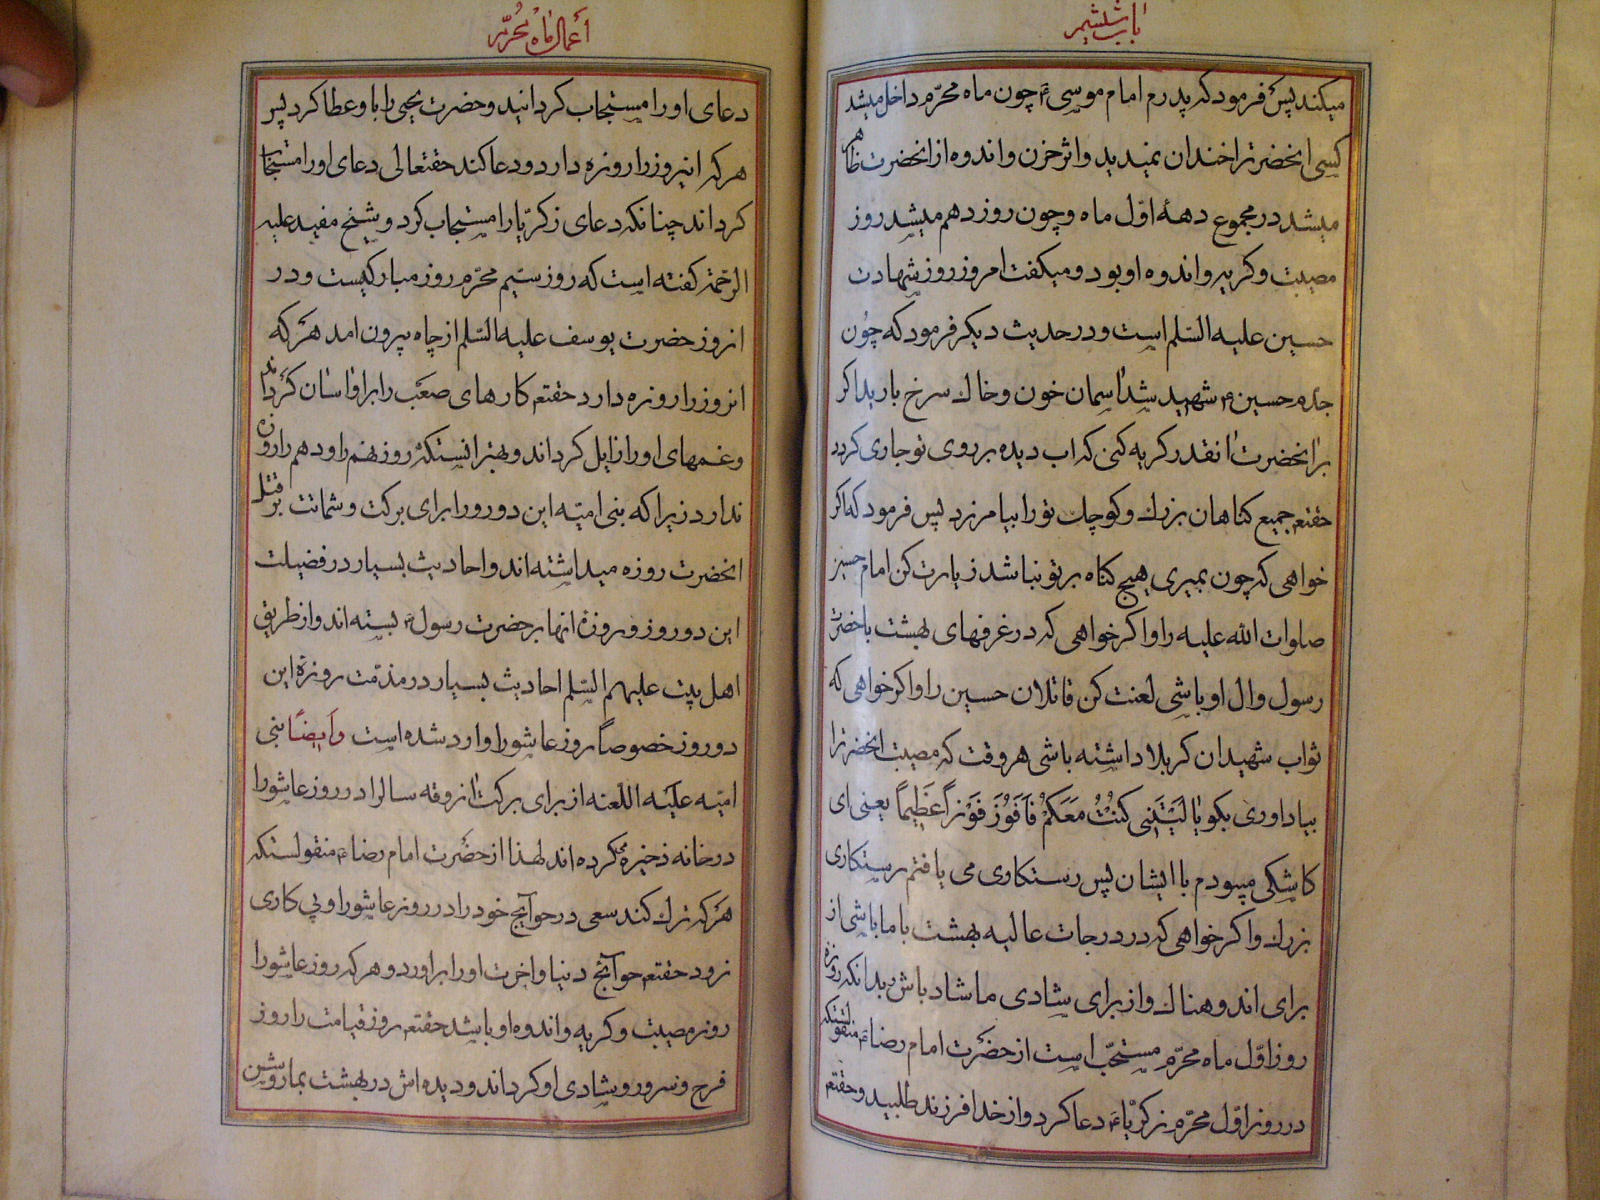 باب ششم
میکند پس فرمود که پدرم امام موسی ع چون ماه محرّم داخل میشد
کسی انحضرترا خندان نمیدید و اثر حزن و اندوه از انحضرت ظاهر
میشد در مجموع دههٔ اوّل ماه و چون روز دهم میشد روز
مصیبت و کریه و اندوه او بود و میکفت امروز روز شهادت
حسین علیه السّلم است و در حدیث دیکر فرمود که چون
جدم حسین ع شهید شد اسمان خون و خاك سرخ بارید اکر
بر انحضرت انقدر کریه کنی که اب دیده بر روی تو جاری کردد
حقتعم جمیع کناهان بزرك و کوچك تو را بیامرزد پس فرمود که اکر
خواهی که چون بمیری هیچ کناه بر تو نباشد زیارت کن امام حسین
صلوات الله علیه را و اکر خواهی که در غرفهای بهشت با حضرت
رسول و ال او باشی لعنت کن قاتلان حسین را و اکر خواهی که
ثواب شهیدان کربلا داشته باشی هر وقت که مصیبت انحضرترا
بیاد اوری بکو یٰا لَیْتَنِی کُنْتُ مَعَکُمْ فَاَفُوْزَ فَوْزاً عَظِیماً یعنی ای
کاشکی میبودم با ایشان پس رستکاری می یافتم رستکاری
بزرك و اکر خواهی که در درجات عالیه بهشت با ما باشی از
برای اندوه ما اندوهناك و از برای شادی ما شاد باش بدانکه روزه
روز اوّل ماه محرّم مستحبّ است از حضرت امام رضا ع منقولستکه
در روز اوّل محرّم زکریّا ع دعا کرد و از خدا فرزند طلبید و حقتعم
أعمال ماه محرّم
دعای او را مستجاب کردانید و حضرت یحیی را باو عطا کرد پس
هر که انروز را روزه دارد و دعا کند حقتعالی دعای او را مستجاب
کرداند چنانکه دعای زکریّا را مستجاب کرد و شیخ مفید علیه
الرّحمة کفته است که روز سیّم محرّم روز مبارکیست و در
انروز حضرت یوسف علیه السّلم از چاه بیرون امد هر که
انروز را روزه دارد حقتعم کارهای صعب را بر او اسان کرداند
و غمهای او را زایل کرداند و بهتر انستکه روز نهم را و دهم را روزه
ندارد زیرا که بنی امیّه این دو روز را برای برکت و شماتت بر قتل
انحضرت روزه میداشته اند و احادیث بسیار در فضیلت
این دو روز و روزهٔ انها بر حضرت رسول ص بسته اند و از طریق
اهل بیت علیهم السّلم احادیث بسیار در مذمّت روزهٔ این
دو روز خصوصاً روز عاشورا وارد شده است وأیضاً بنی
امیّه علیه اللعنه از برای برکت اذوقه سالرا در روز عاشورا
در خانه ذخیره میکرده اند لهذا از حضرت امام رضا ع منقولستکه
هر که ترك کند سعی در حوآئج خود را در روز عاشورا و پی کاری
نرود حقتعم حوآئج دنیا و اخرت او را براورد و هر که روز عاشورا
روز مصیبت و کریه و اندوه او باشد حقتعم روز قیامت را روز
فرح و سرور و شادی او کرداند و دیده اش در بهشت بما روشن